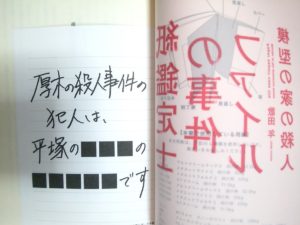 厚木の殺人事件の
犯人は、
平塚の■■■の
■■■■■です
紙鑑定士
の事件
ファイル
模型の家の殺人
歌田 年